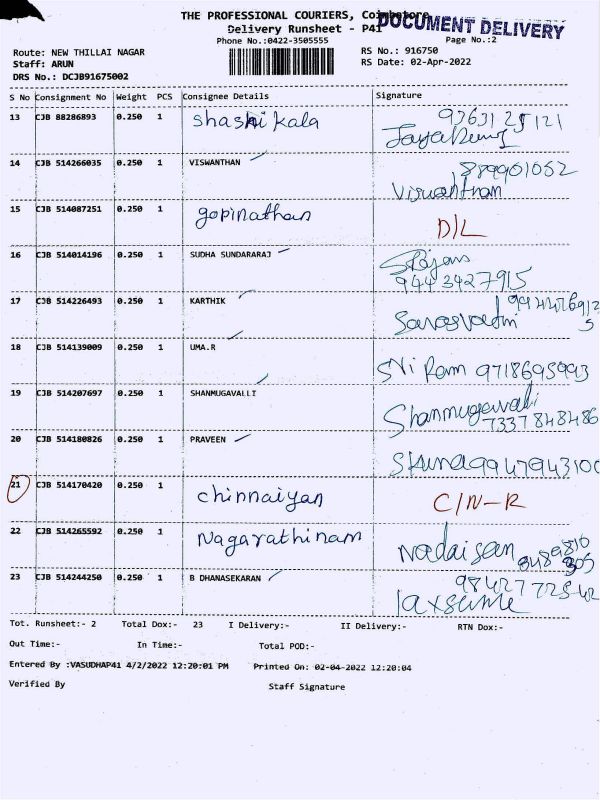 THE PROFESSIONAL COURIERS, Coimbatore
DOCUMENT DELIVERY
Delivery Runsheet - P41
Phone No.:0422-3505555 Page No.:2
Route: NEW THILLAI NAGAR RS No.: 916750
Staff: ARUN RS Date: 02-Apr-2022
DRS No.: DCJB91675002
S No Consignment No Weight PCS Consignee Details Signature
13 CJB 88286893 0.250 1 Shashikala 9363125121
Jayakumar
14 CJB 514266035 0.250 1 VISWANTHAN
Viswantham
15 CJB 514087251 0.250 1 gopinathan D/L
16 CJB 514014196 0.250 1 SUDHA SUNDARARAJ
9443427915
17 CJB 514226493 0.250 1 KARTHIK
18 CJB 514139009 0.250 1 UMA.R
Sri Ram 9718695993
19 CJB 514207697 0.250 1 SHANMUGAVALLI
Shanmugavalli
7337848486
20 CJB 514180826 0.250 1 PRAVEEN
9947943100
21 CJB 514170420 0.250 1 chinnaiyan C/N-R
22 CJB 514265592 0.250 1 Nagarathinam
23 CJB 514244250 0.250 1 B DHANASEKARAN
Tot. Runsheet:- 2 Total Dox:- 23 I Delivery:- II Delivery:- RTN Dox:-
Out Time:- In Time:- Total POD:-
Entered By :VASUDHAP41 4/2/2022 12:20:01 PM Printed On: 02-04-2022 12:20:04
Verified By Staff Signature